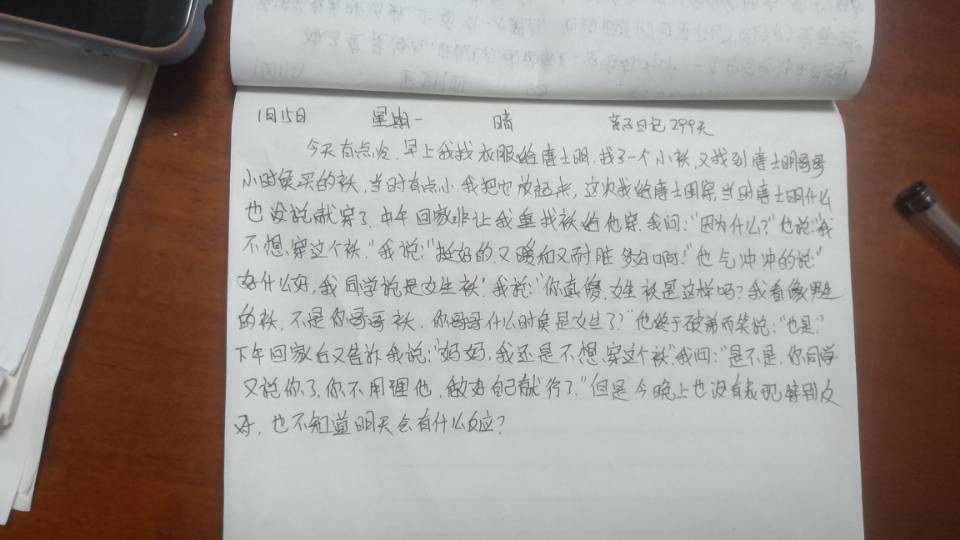 1月15日 星期一 晴 亲子日记 299天
今天有点冷,早上我找衣服给唐士明,找了一个小袄,又找到唐士明哥哥
小时候买的袄,当时有点小,我把它放起来,这次我给唐士明穿,当时唐士明什么
也没说就穿了,中午回家非让我重找袄给他穿,我问:"因为什么?"他说"我
不想穿这个袄."我说:"挺好的,又暖和又耐脏 多好啊!"他气冲冲的说:"
好什么好,我同学说是女生袄".我说:"你真傻,女生袄是这样吗?我看像男生
的袄,不是你哥哥袄,你哥哥什么时候是女生了?"他终于破涕而笑说:"也是."
下午回家后又告诉我说:"妈妈,我还是不想穿这个袄"我问:"是不是,你同学
又说你了,你不用理他,做好自己就行了."但是今晚上也没有表现特别反
,也不知道明天会有什么反应?